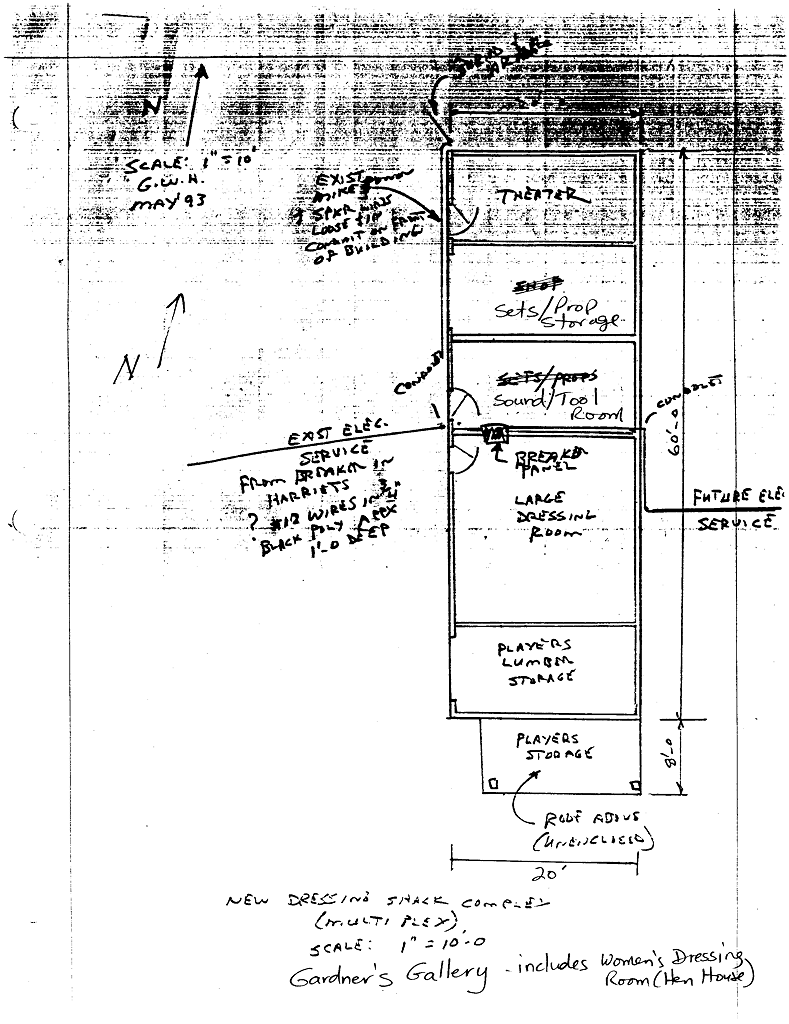 N
SCALE: 1" = 10'
G.W.H.
MAY '93
EXIST
MIKE & POWER
SPKR LINES
CONDUIT ON FRONT
OF BUILDING
THEATER
SHOP
Sets/Prop
Storage
N
CONDUIT
SETS/PROPS
Sound/Tool
Room
CONDULET
60'-0
EXIST ELEC.
SERVICE
FROM BREAKER IN
HARRIETS
? #12 WIRES IN 3/4"
BLACK POLY APPX
1'-0 DEEP
BREAKER
PANEL
LARGE
DRESSING
ROOM
FUTURE ELE
SERVICE
PLAYERS
LUMBER
STORAGE
PLAYERS
STORAGE
8'-0
ROOF ABOVE
(UNENCLOSED)
20'
NEW DRESSING SHACK COMPLEX
(MULTI PLEX)
SCALE: 1" = 10'-0
Gardner's Gallery - includes Women's Dressing
Room (Hen House)